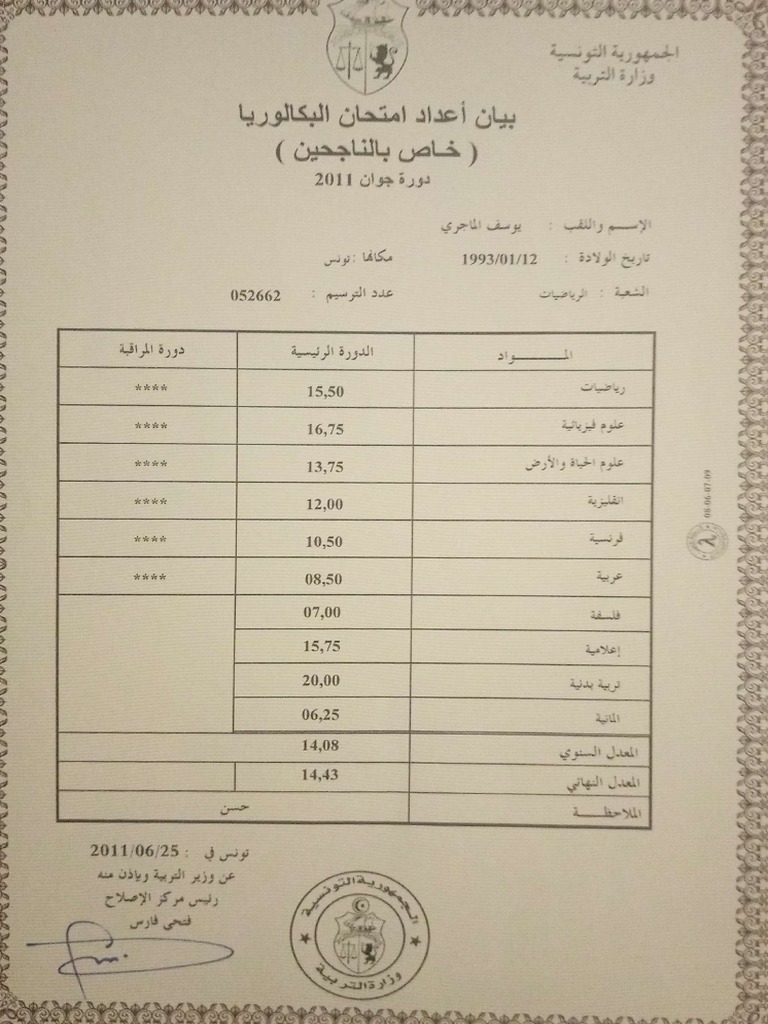 الجمهورية التونسية
وزارة التربية
بيان أعداد امتحان البكالوريا
( خاص بالناجحين )
دورة جوان 2011
الإسم واللقب : يوسف الماجري
تاريخ الولادة : 1993/01/12 مكانها : تونس
الشعبة : الرياضيات عدد الترسيم : 052662
المواد الدورة الرئيسية دورة المراقبة
رياضيات 15,50 ****
علوم فيزيائية 16,75 ****
علوم الحياة والأرض 13,75 ****
انقليزية 12,00 ****
فرنسية 10,50 ****
عربية 08,50 ****
فلسفة 07,00
إعلامية 15,75
تربية بدنية 20,00
المانية 06,25
المعدل السنوي 14,08
المعدل النهائي 14,43
الملاحظة حسن
تونس في : 2011/06/25
عن وزير التربية وبإذن منه
رئيس مركز الإصلاح
فتحي فارس
الجمهورية التونسية
وزارة التربية
08-06-07-09